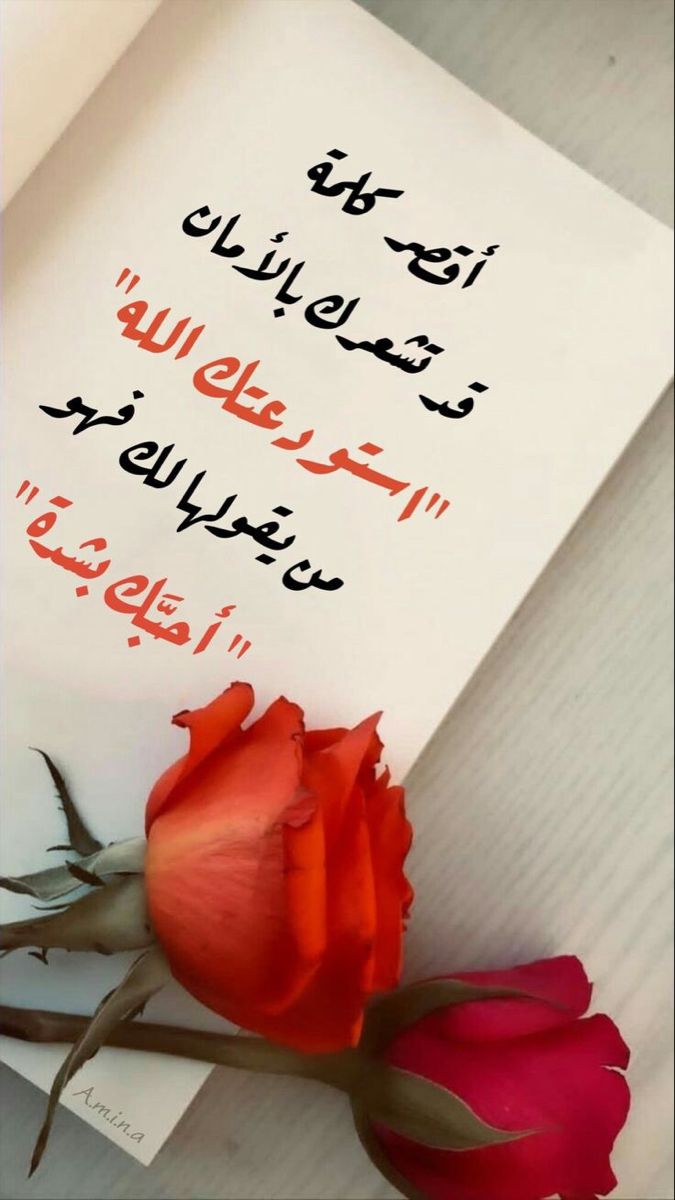 أقصر كلمة
قد تشعرك بالأمان
"استودعتك الله"
من يقولها لك فهو
"أحبَّك بشدة"
A.m.i.n.a